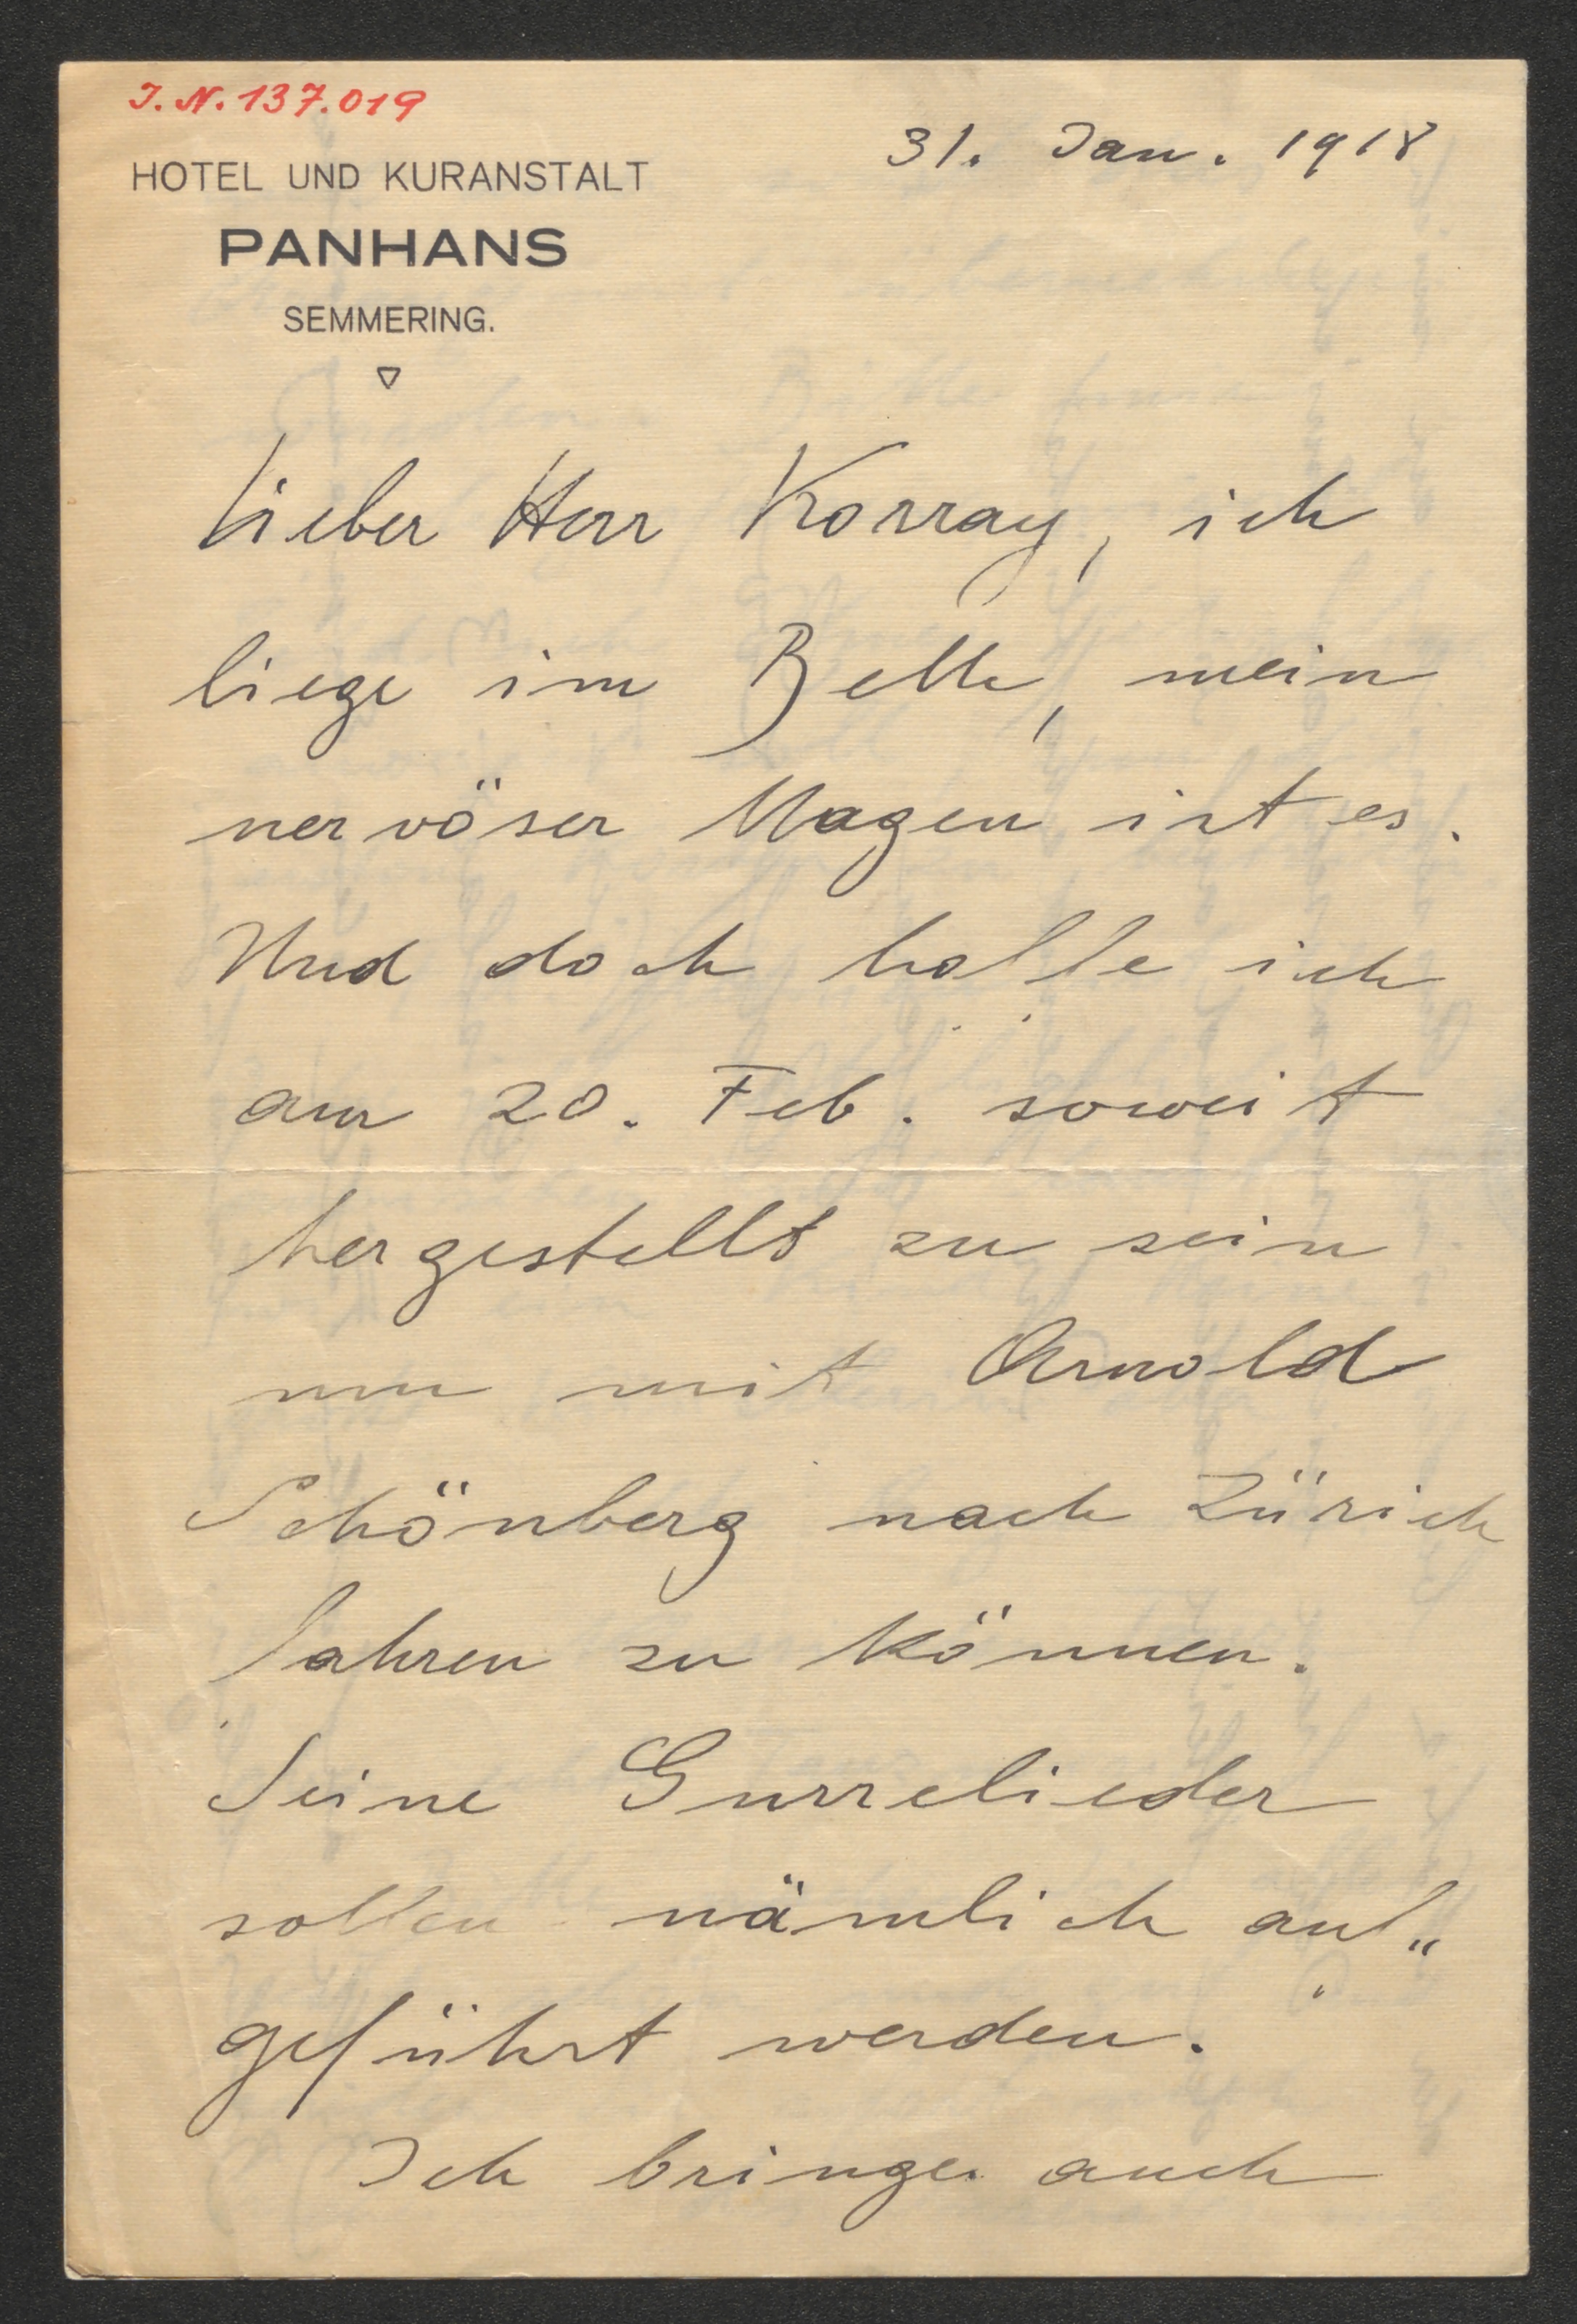 J. N. 137.019
31. Jan. 1918
HOTEL UND KURANSTALT
PANHANS
SEMMERING.
Lieber Herr Korray, ich
liege im Bette, mein
nervöser Magen ist es.
Und doch hoffe ich
am 20. Feb. soweit
hergestellt zu sein
um mit Arnold
Schönberg nach Zürich
fahren zu können.
Seine Gurrelieder
sollen nämlich auf„
geführt werden.
Ich bringe auch